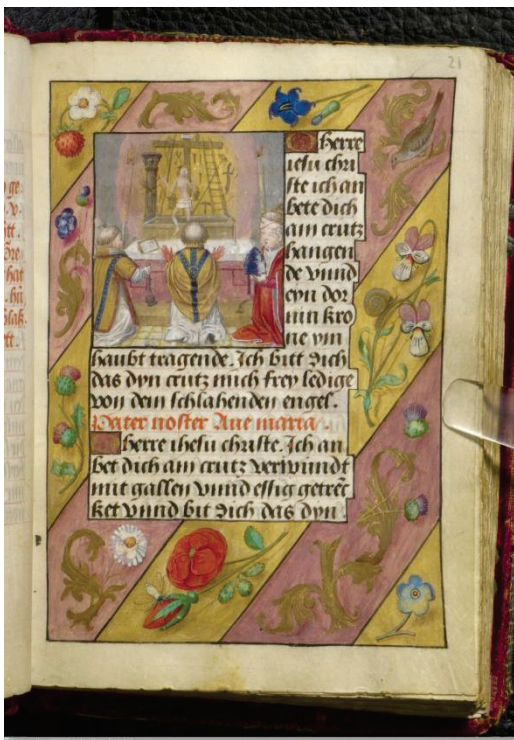 21
O herre
iesu chri
ste ich an
bete dich
am crutz
hangen
de vnnd
eyn dor
nin kro
ne vm
haubt tragende. Ich bitt dich
das dyn crutz mich frey ledige
von dem schlahenden engel.
Pater noster Aue maria.
O herre ihesu christe. Ich an
bet dich am crutz verwundt
mit gallen vnnd essig getrēc
ket vnnd bit dich das dyn